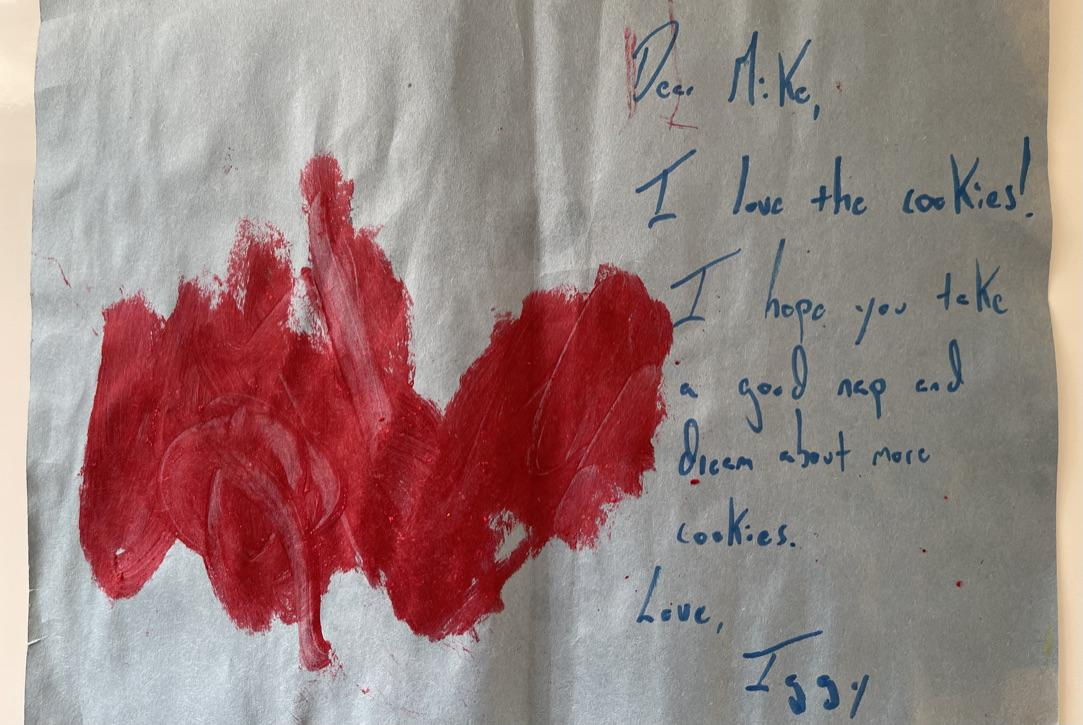 Dear Mike,
I love the cookies!
I hope you take
a good nap and
dream about more
cookies.
Love,
Iggy